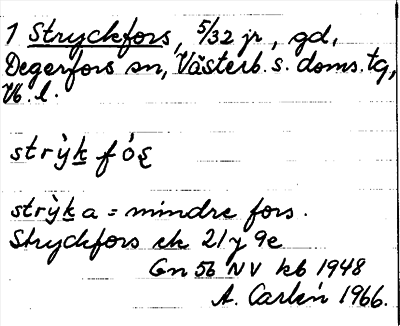 1 Stryckfors, 5/32 jr, gd,
Degerfors sn, Västerb. s. doms. tg,
Vb. l.
strỳk fó̀ʂ
strỳka = mindre fors.
Stryckfors ek 21 y 9e
Gn 56 NV kb 1948
A. Carlén 1966.